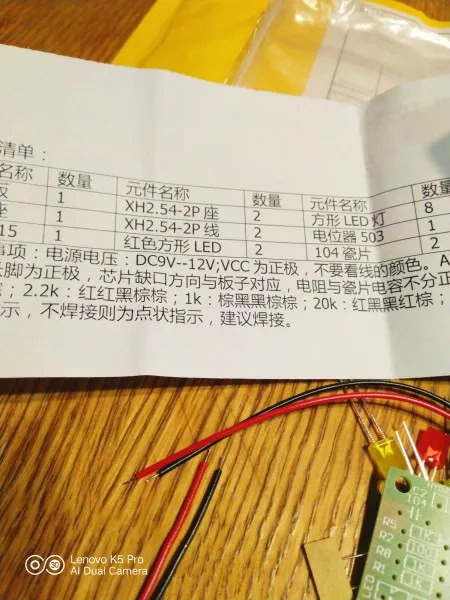 清单：
名称 数量 元件名称 数量 元件名称 数量
板 1 XH2.54-2P 座 2 方形 LED 灯 8
座 1 XH2.54-2P 线 2 电位器 503 1
15 1 红色方形 LED 2 104 瓷片 2
事项：电源电压：DC9V--12V;VCC 为正极，不要看线的颜色。A
长脚为正极，芯片缺口方向与板子对应，电阻与瓷片电容不分正
棕；2.2k：红红黑棕棕；1k：棕黑黑棕棕；20k：红黑黑红棕；
示，不焊接则为点状指示，建议焊接。
C2
104
R5 1K
R2
R8 1K
R1 1k
LED
Lenovo K5 Pro
AI Dual Camera